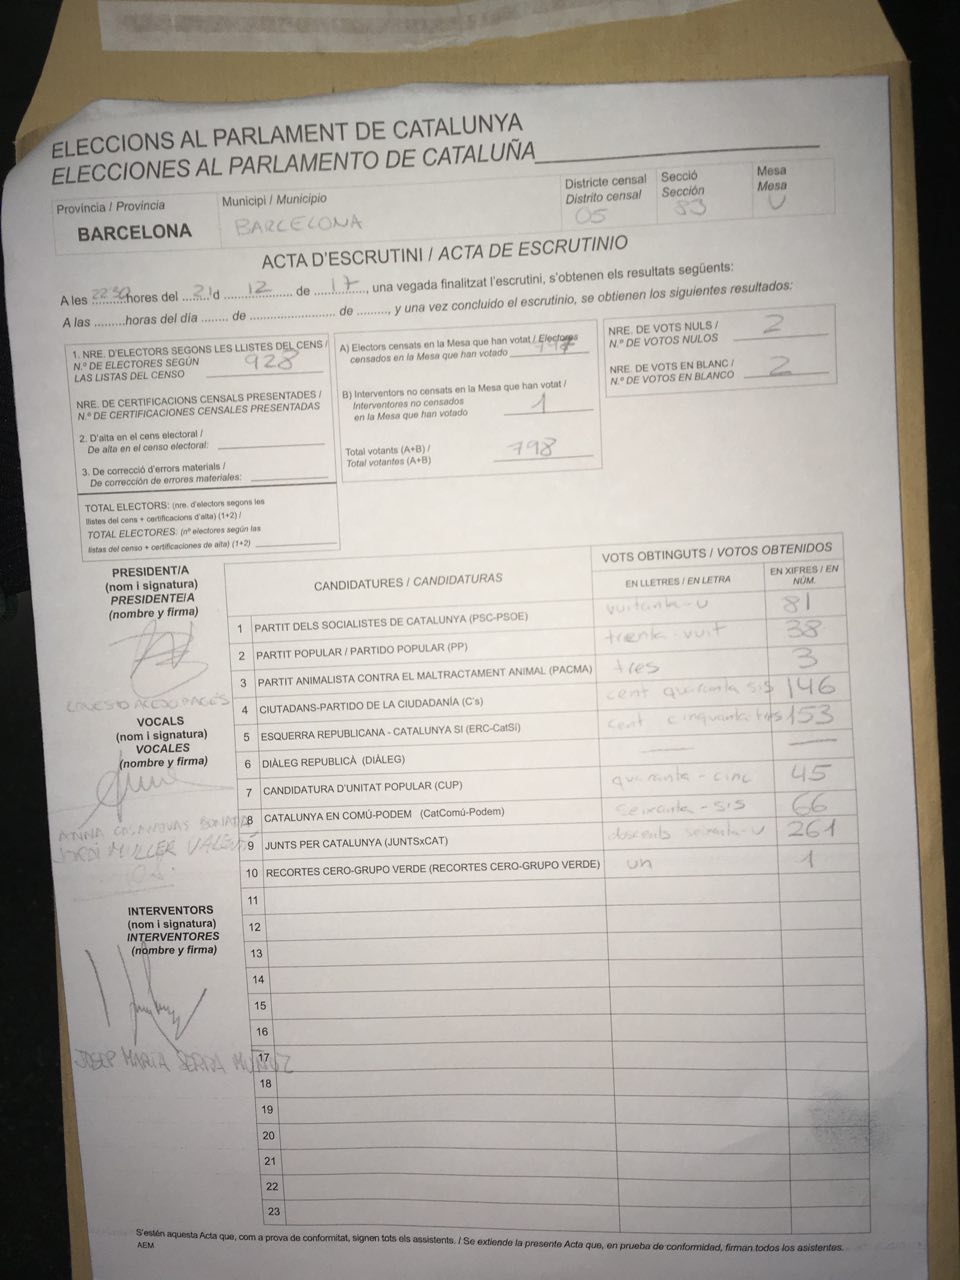 ELECCIONS AL PARLAMENT DE CATALUNYA
ELECCIONES AL PARLAMENTO DE CATALUÑA
Província / Provincia
BARCELONA
Municipi / Municipio
BARCELONA
Districte censal
Distrito censal
05
Secció
Sección
83
Mesa
Mesa
U
ACTA D'ESCRUTINI / ACTA DE ESCRUTINIO
A les 22 30 hores del 21 d 12 de 17, una vegada finalitzat l'escrutini, s'obtenen els resultats següents:
A las .........horas del día ........ de .......................... de ........., y una vez concluido el escrutinio, se obtienen los siguientes resultados:
1. NRE. D'ELECTORS SEGONS LES LLISTES DEL CENS /
N.º DE ELECTORES SEGÚN
LAS LISTAS DEL CENSO
928
NRE. DE CERTIFICACIONS CENSALS PRESENTADES /
N.º DE CERTIFICACIONES CENSALES PRESENTADAS
2. D'alta en el cens electoral /
De alta en el censo electoral:
3. De correcció d'errors materials /
De corrección de errores materiales:
TOTAL ELECTORS: (nre. d'electors segons les
llistes del cens + certificacions d'alta) (1+2) /
TOTAL ELECTORES: (nº electores según las
listas del censo + certificaciones de alta) (1+2)
A) Electors censats en la Mesa que han votat / Electores
censados en la Mesa que han votado 797
B) Interventors no censats en la Mesa que han votat /
Interventores no censados
en la Mesa que han votado 1
Total votants (A+B) /
Total votantes (A+B)
798
NRE. DE VOTS NULS /
N.º DE VOTOS NULOS
2
NRE. DE VOTS EN BLANC /
N.º DE VOTOS EN BLANCO
2
PRESIDENT/A
(nom i signatura)
PRESIDENTE/A
(nombre y firma)
VOCALS
(nom i signatura)
VOCALES
(nombre y firma)
ANNA CASANOVAS
JORDI MULLER
INTERVENTORS
(nom i signatura)
INTERVENTORES
(nombre y firma)
JOSEP MARIA SERRA MUÑOZ
CANDIDATURES / CANDIDATURAS
VOTS OBTINGUTS / VOTOS OBTENIDOS
EN LLETRES / EN LETRA
EN XIFRES / EN NÚM.
1 PARTIT DELS SOCIALISTES DE CATALUNYA (PSC-PSOE) vuitanta-u 81
2 PARTIT POPULAR / PARTIDO POPULAR (PP) trenta-vuit 38
3 PARTIT ANIMALISTA CONTRA EL MALTRACTAMENT ANIMAL (PACMA) tres 3
4 CIUTADANS-PARTIDO DE LA CIUDADANÍA (C's) cent quaranta sis 146
5 ESQUERRA REPUBLICANA - CATALUNYA SI (ERC-CatSí) cent cinquanta tres 153
6 DIÀLEG REPUBLICÀ (DIÀLEG)
7 CANDIDATURA D'UNITAT POPULAR (CUP) quaranta-cinc 45
8 CATALUNYA EN COMÚ-PODEM (CatComú-Podem) seixanta-sis 66
9 JUNTS PER CATALUNYA (JUNTSxCAT) doscents seixanta-u 261
10 RECORTES CERO-GRUPO VERDE (RECORTES CERO-GRUPO VERDE) un 1
11
12
13
14
15
16
17
18
19
20
21
22
23
S'estén aquesta Acta que, com a prova de conformitat, signen tots els assistents. / Se extiende la presente Acta que, en prueba de conformidad, firman todos los asistentes.
AEM